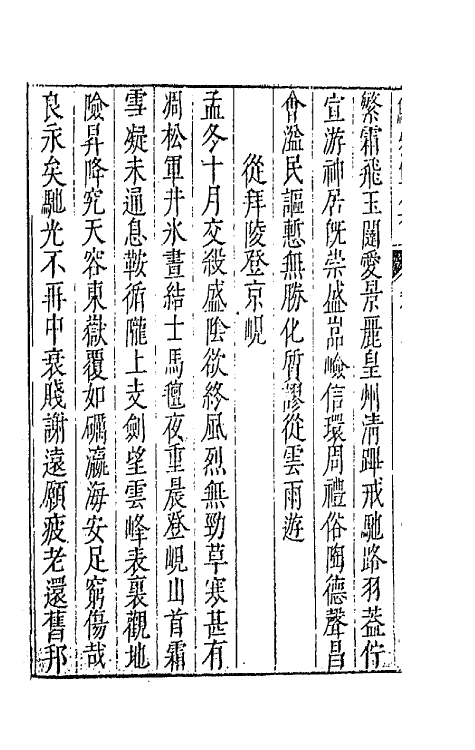 繁霜飛玉闥愛景麗皇州清蹕戒馳路羽蓋佇
宣游神居旣崇盛嵓嶮信環周禮俗陶德聲昌
會溢民謳慙無勝化質謬從雲雨遊
從拜陵登京峴
孟冬十月交殺盛陰欲終風烈無勁草寒甚有
凋松軍井氷晝結士馬氊夜重晨登峴山首霜
雪凝未通息鞍循隴上支劍望雲峰表裏觀地
險昇降究天容東嶽覆如礪瀛海安足窮傷哉
良永矣馳光不再中衰賤謝遠願疲老還舊邦